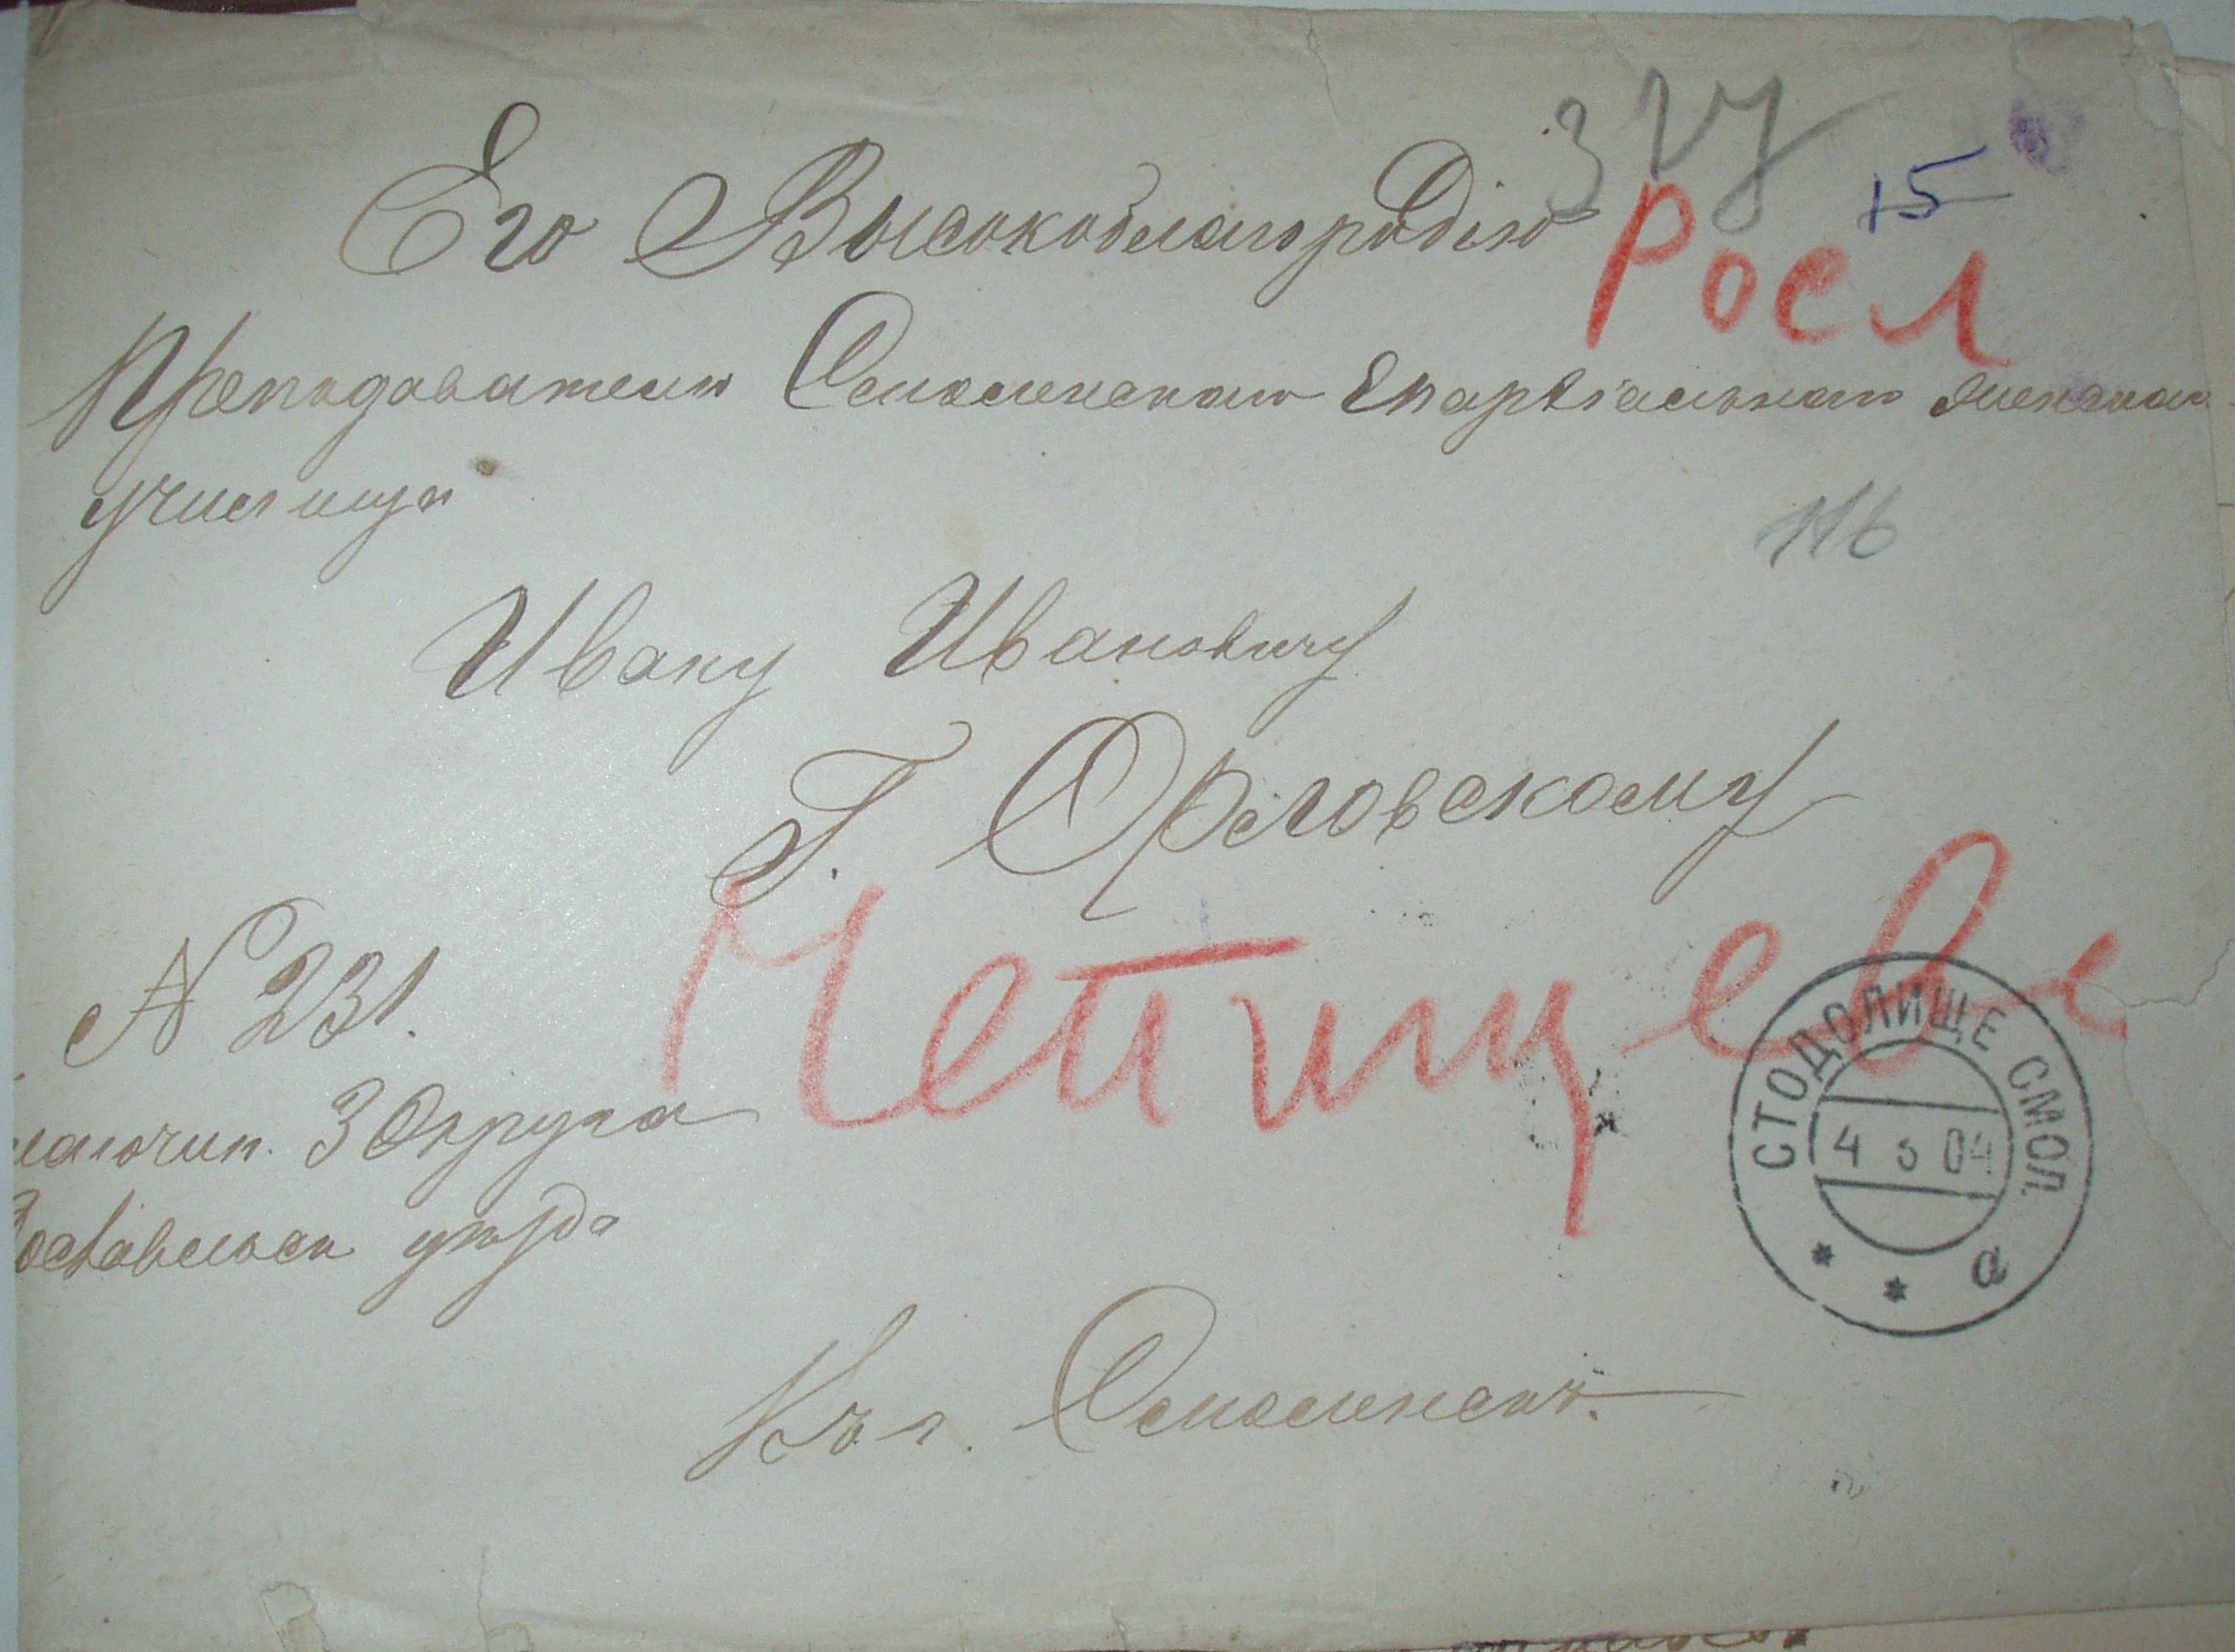 327
15
Его Высокоблагородію
Росл
Преподавателю Смоленскаго Епархіальнаго Женскаго
училища
116
Ивану Ивановичу
Г. Орловскому
№ 231.
Чепищево
лагочин. 3 Округа
уѣзда
СТОДОЛИЩЕ СМОЛ.
4 3 04
а
Въ г. Смоленскъ.